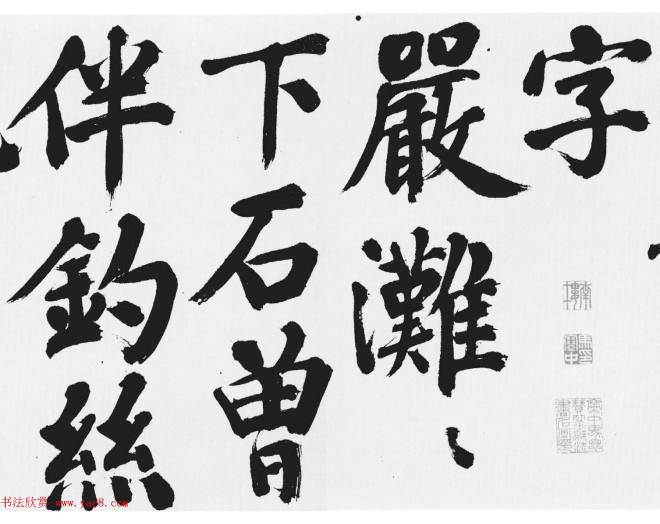 字
嚴灘〻
下石曾
伴釣絲
书法欣赏 www.yac8.com